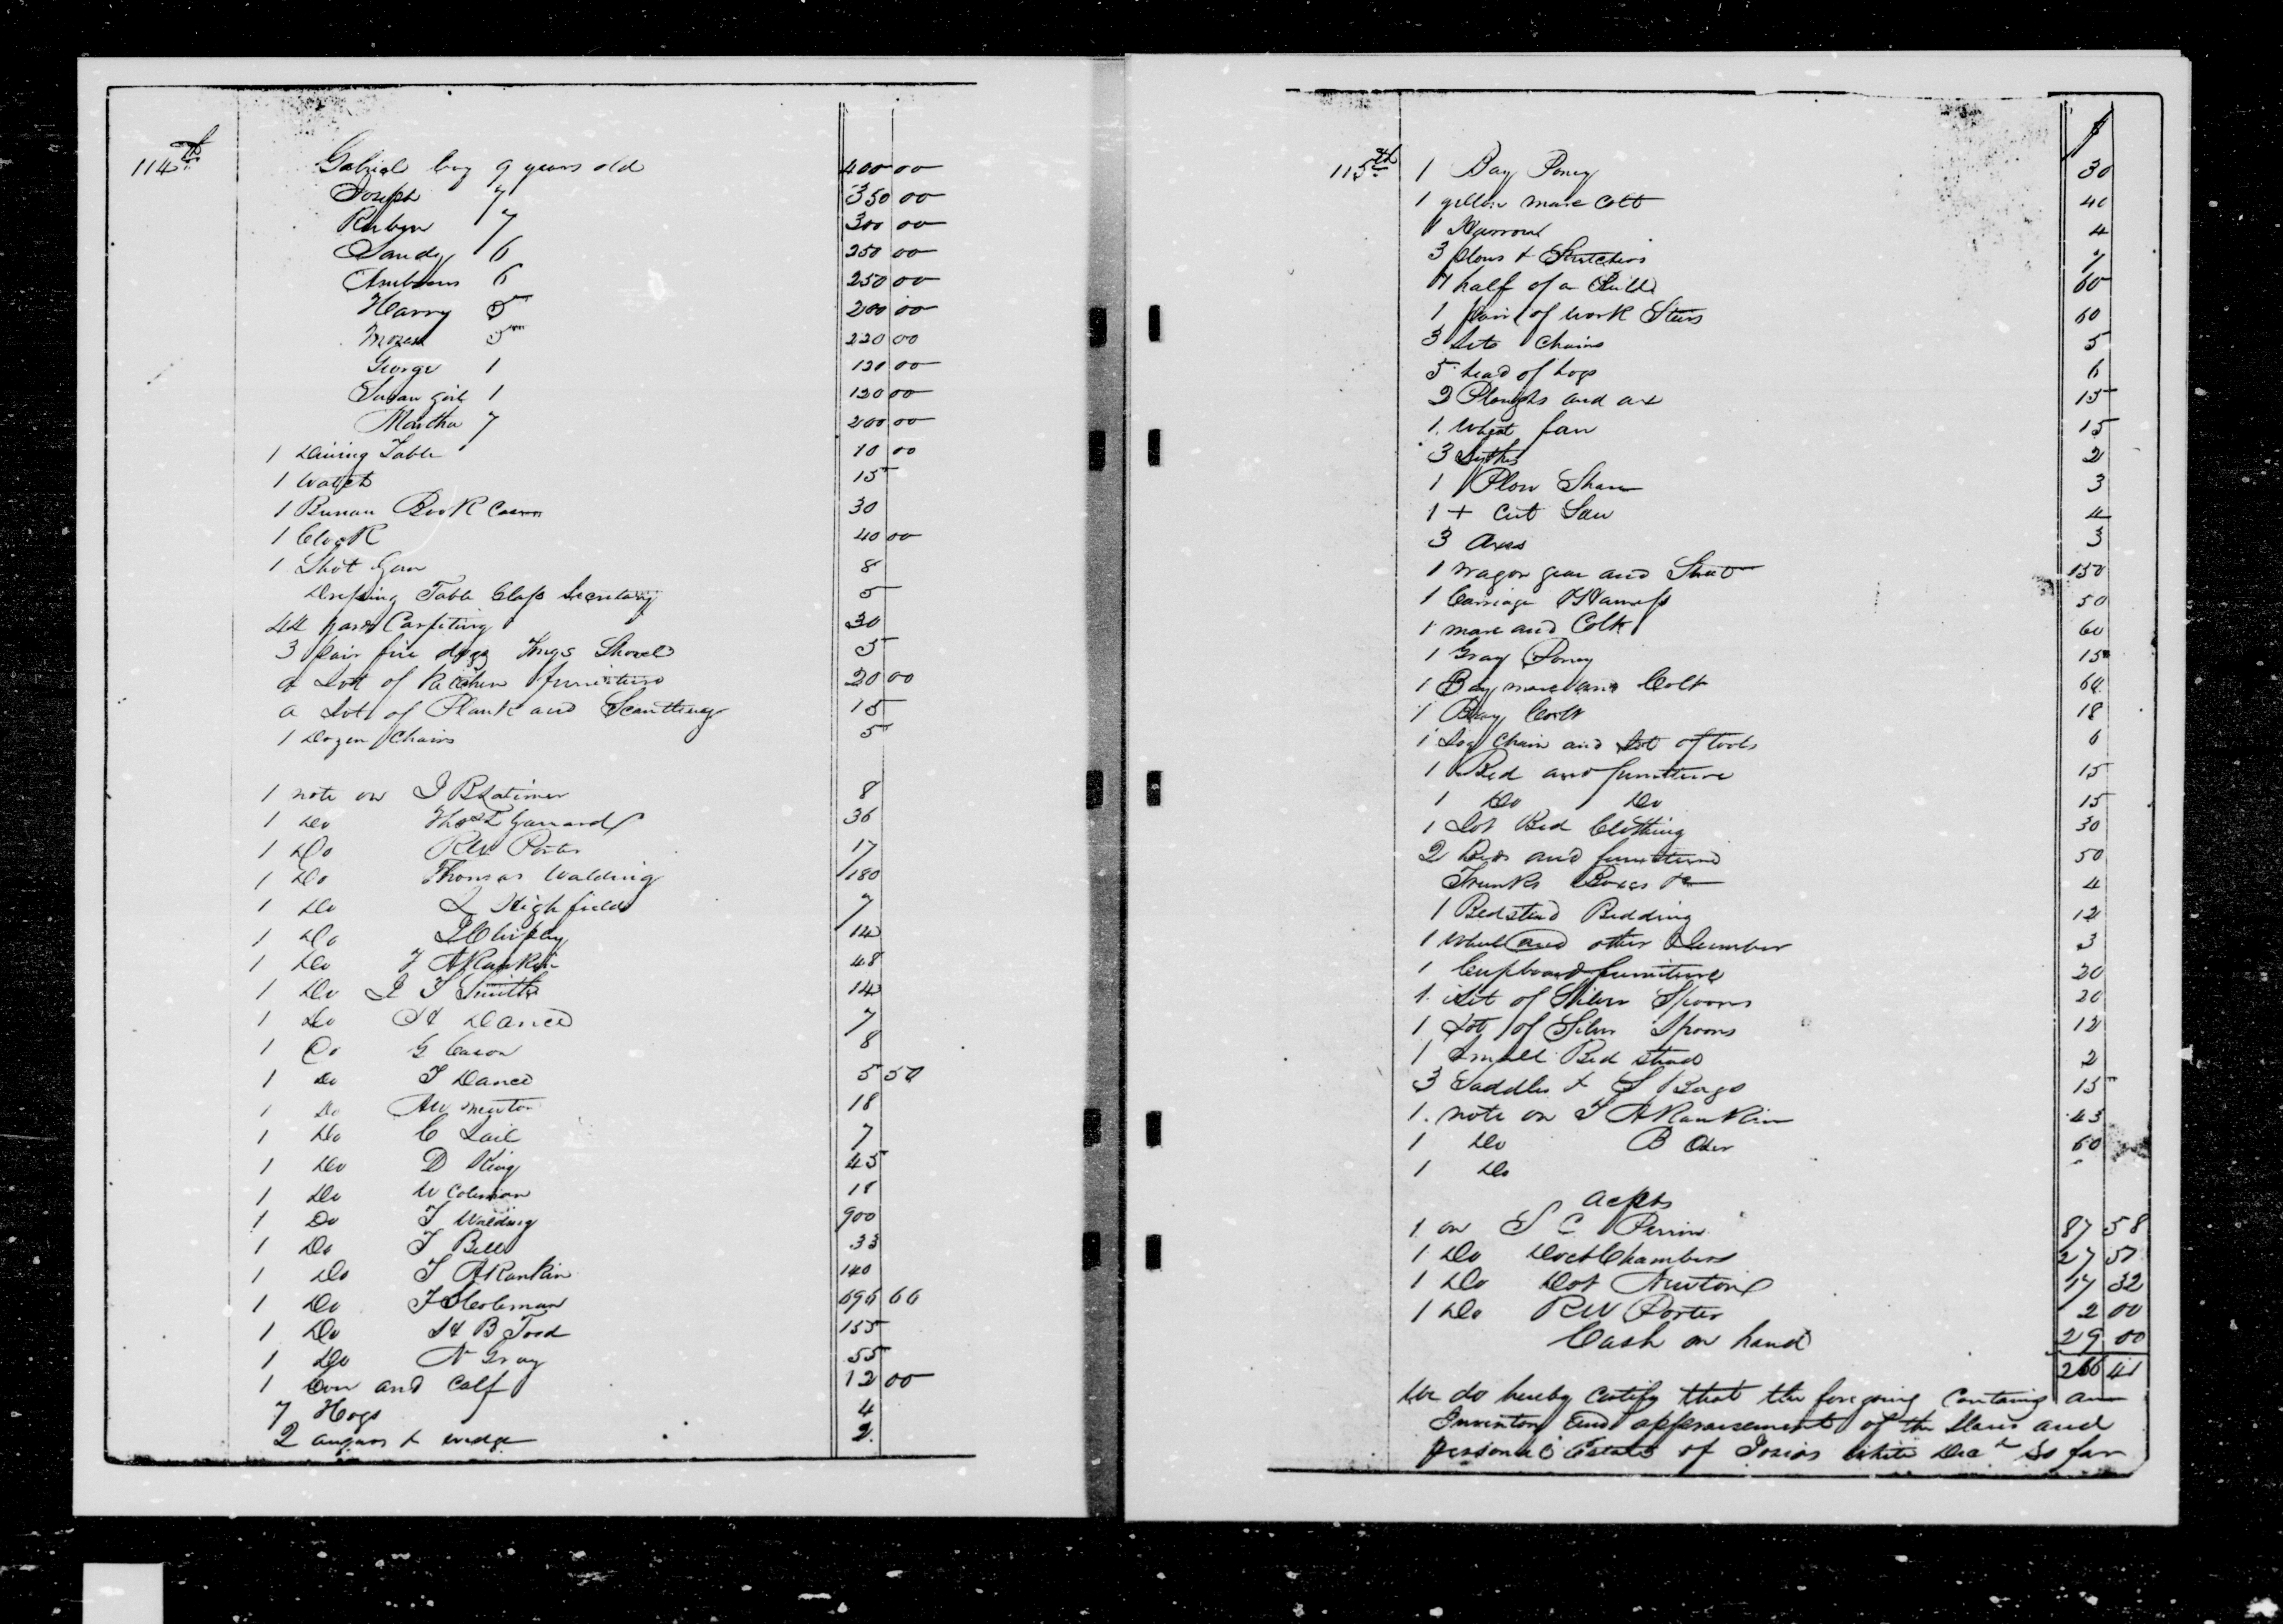 114th
Gabriel boy 9 years old 400 00
Joseph 7 350 00
Reubyn 7 300 00
Sandy 6 250 00
6 250 00
Harry 5 200 00
Moses 5 220 00
George 1 120 00
Susan girl 1 120 00
Martha 7 200 00
1 Dining Table 10 00
1 Watch 15
1 Bureau Book Case 30
1 Clock 40 00
1 Shot Gun 8
Dressing Table Glass Secretary 5
44 yards Carpeting 30
3 pair fire dogs Tongs Shovel 5
a Lot of Kitchen furniture 20 00
a Lot of Plank and Scantling 15
1 Dozen Chairs 5
1 note on J B Latimer 8
1 Do Thos L Garrard 36
1 Do RW Porter 17
1 Do Thomas Walding 180
1 Do L Highfield 7
1 Do 14
1 Do J A Rankin 48
1 Do J T Smith 14
1 Do H Dance 7
1 Do G Cason 8
1 Do T Dance 5 50
1 Do AW 18
1 Do C Lail 7
1 Do D King 45
1 Do W Coleman 18
1 Do T Walding 900
1 Do T Bell 33
1 Do T A Rankin 140
1 Do Coleman 696 66
1 Do H B Todd 155
1 Do N Gray 55
1 Cow and Calf 12 00
7 Hogs 4
2 augurs & wedge 2
115th $
1 Bay Poney 30
1 yellow mare Colt 40
1 Harrow 4
3 plows & Stretchers 7
half of a 60
1 pair of work Steers 60
3 Sets Chains 5
5 head of hogs 6
2 Ploughs and ax 15
1 Wheat fan 15
3 Sythes 2
1 Plow Share 3
1 + Cut Saw 4
3 Axes 3
1 wagon gear and 150
1 Carriage & Harness 50
1 mare and Colt 60
1 Gray Poney 15
1 Bay mare and Colt 60
1 Bay Colt 18
1 Log Chain and Lot of tools 6
1 Bed and furniture 15
1 Do Do 15
1 Lot Bed Clothing 30
2 Beds and furniture 50
Trunks Boxes &c 4
1 Bedstead Bedding 12
1 Wheel and other Lumber 3
1 Cupboard furniture 20
1 Set of Silver Spoons 20
1 Lot of Silver Spoons 12
1 Small Bed Stead 2
3 Saddles & S Bags 15
1 note on T A Rankin 43
1 Do B Oder 60
1 Do
acpts
1 on S C Perrin 87 58
1 Do Doct Chambers 27 51
1 Do Dot Newton 17 32
1 Do RW Porter 2 00
Cash on hand 29 00
266 41
We do hereby Certify that the foregoing Contains an
Inventory and appraisement of the Slaves and
personal Estate of Josias White Decd So far